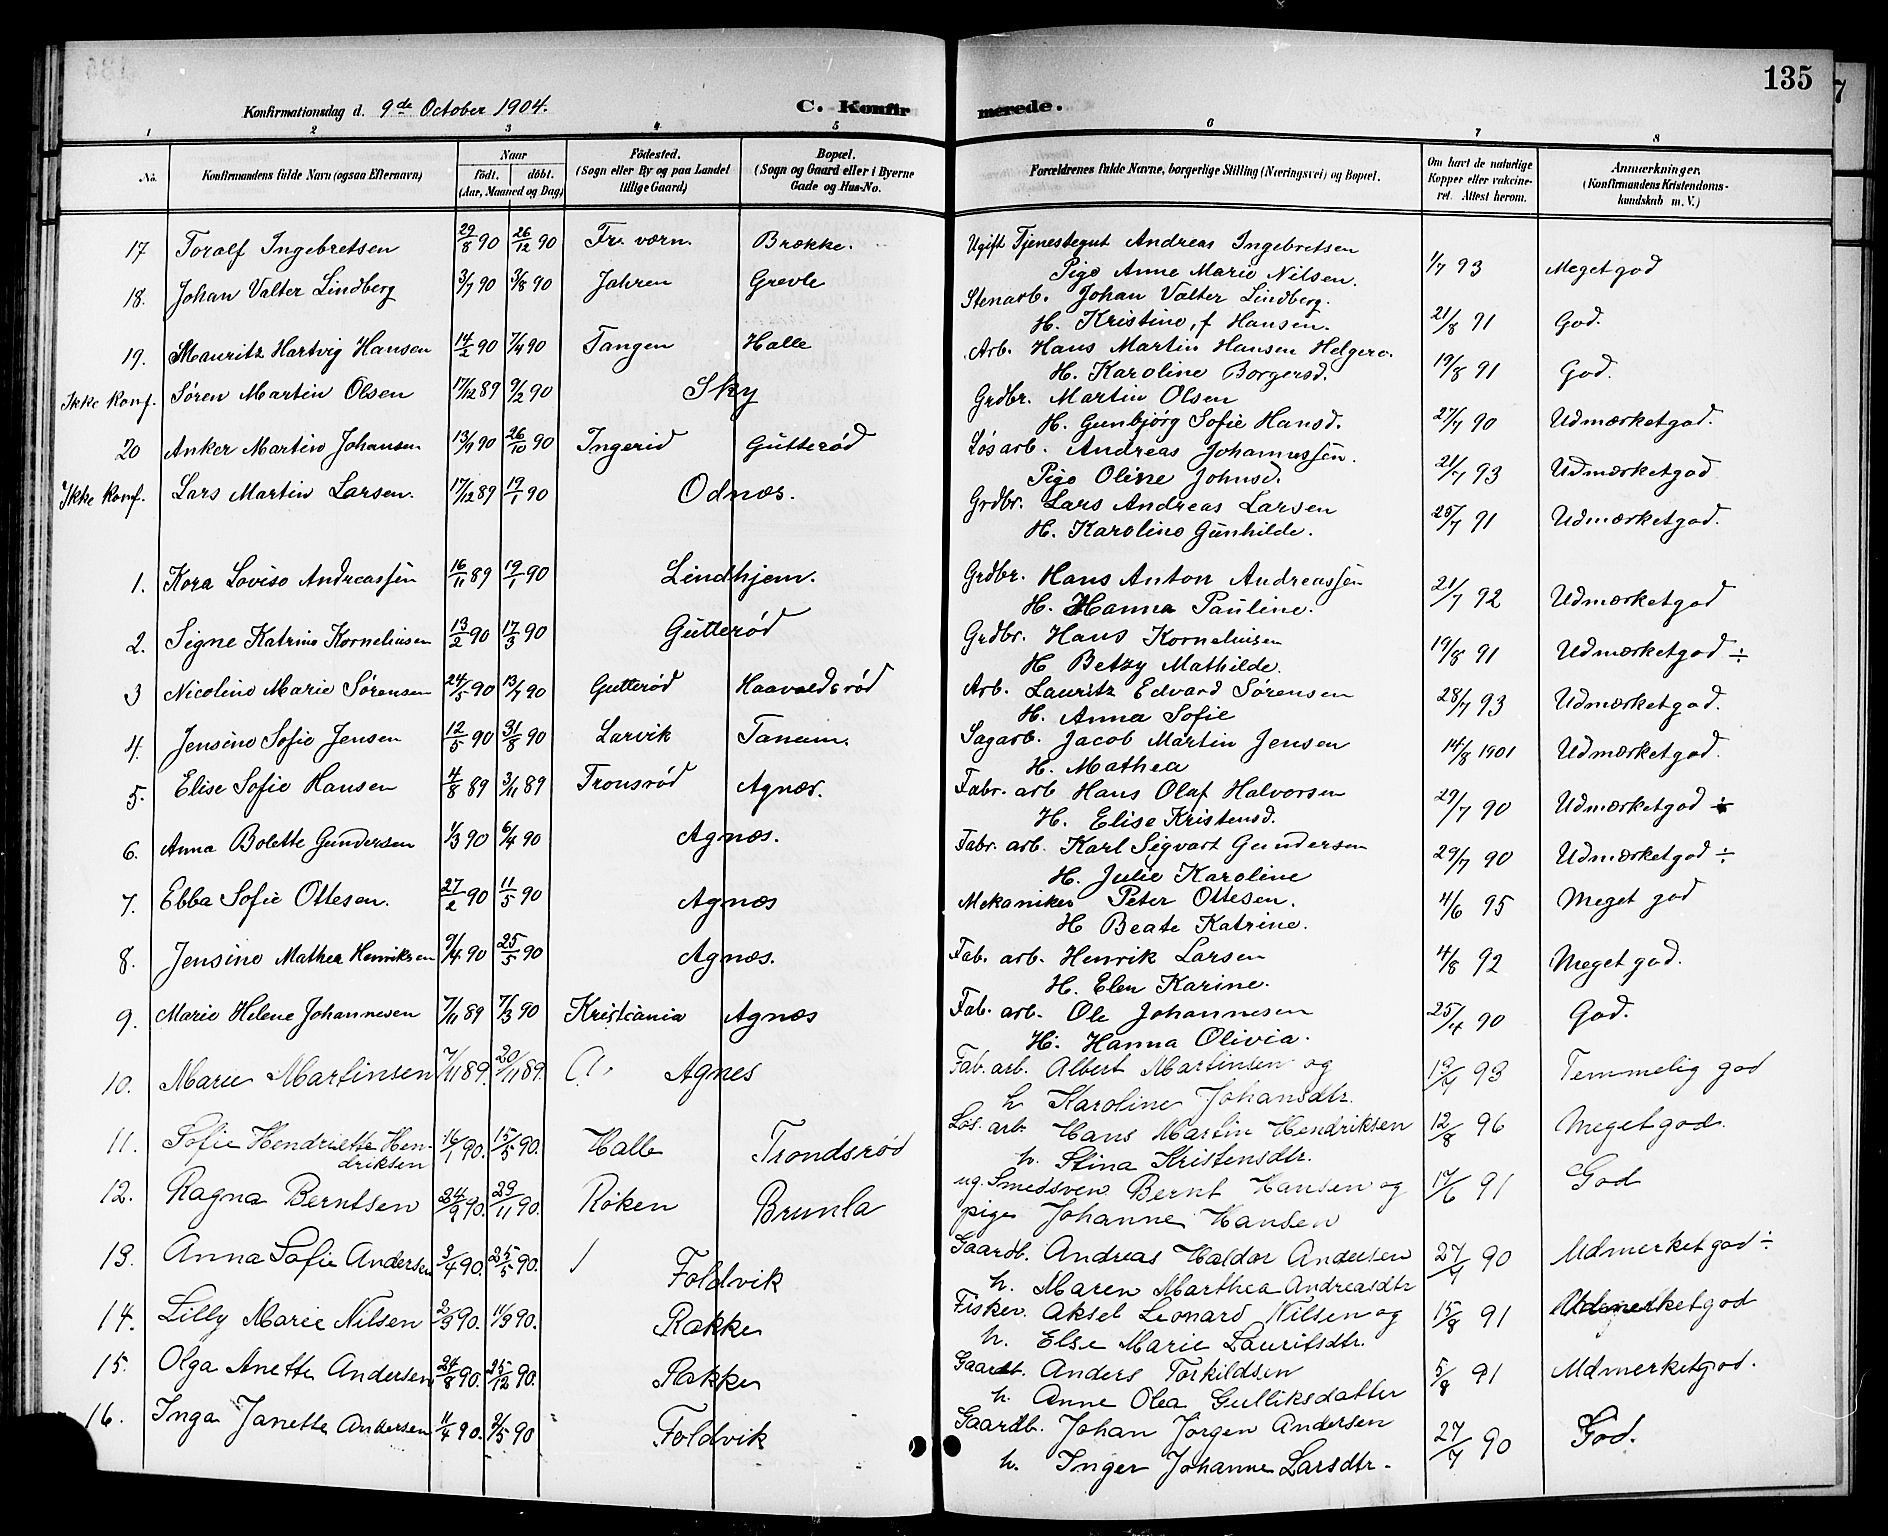 135
Konfirmationsdag d. 9de October 1904. C. Konfirmerede.
1 2 3 4 5 6 7 8
No. Konfirmandens fulde Navn (ogsaa Efternavn) Naar født. døbt. (Aar, Maaned og Dag) Fødested. (Sogn eller By og paa Landet tillige Gaard) Bopæl. (Sogn og Gaard eller i Byerne Gade og Hus-No. Forældrenes fulde Navne, borgerlige Stilling (Næringsvei) og Bopæl. Om havt de naturlige Kopper eller vakcineret. Attest herom. Anmærkninger. (Konfirmandens Kristendomskundskab m. V.)
17 Toralf Ingebretsen 29/8 90 26/12 90 Fr. værn. Brække. Ugift Tjenestegut Andreas Ingebretsen 1/7 93 Meget god
Pige Anne Marie Nilsen.
18. Johan Valter Lindberg 3/7 90 3/8 90 Jahren Grevle Stenarb. Johan Valter Lindberg. 21/8 91 God.
H. Kristine, f Hansen.
19. Mauritz Hartvig Hansen 14/2 90 7/4 90 Tangen Halle Arb. Hans Martin Hansen Helgero. 19/8 91 God.
H. Karoline Borgersd.
Ikke konf. Søren Martin Olsen 17/12 89 9/2 90 Sky Grdbr. Martin Olsen 27/7 90 Udmærket god.
H. Gunbjørg Sofie Hansd.
20 Anker Martin Johansen 13/9 90 26/10 90 Ingerid Gutterød Løsarb. Andreas Johannessen. 21/7 93 Udmærket god
Pige Oline Johnsd.
Ikke konf. Lars Martin Larsen. 17/12 89 19/1 90 Odnæs. Grdbr. Lars Andreas Larsen 25/7 91 Udmærket god.
H. Karoline Gunhilde.
1. Kora Lovise Andreassen 16/11 89 19/1 90 Lindhjem. Grdbr. Hans Anton Andreassen 21/7 92 Udmærket god
H. Hanna Pauline.
2. Signe Katrine Korneliusen 13/2 90 17/3 90 Gutterød Grdbr. Hans Korneliusen 19/8 91 Udmærket god ÷
H Betzy Mathilde.
3 Nicoline Marie Sørensen 24/5 90 13/7 90 Gutterød Haavaldsrød Arb. Lauritz Edvard Sørensen 28/7 93 Udmærket god.
H. Anna Sofie
4. Jensine Sofie Jensen 12/5 90 31/8 90 Larvik Tanum. Sagarb. Jacob Martin Jensen 14/8 1901 Udmærket god.
H. Mathea
5. Elise Sofie Hansen 4/8 89 3/11 89 Tronsrød Agnæs. Fabr. arb Hans Olaf Halvorsen 29/7 90 Udmærket god ÷
H. Elise Kristensd.
6. Anna Bolette Gundersen 1/3 90 6/4 90 Agnæs. Fabr. arb. Karl Sigvart Gundersen 29/7 90 Udmærket god ÷
H. Julie Karoline
7. Ebba Sofie Ottesen. 27/2 90 11/5 90 Agnæs Mekaniker Peter Ottesen. 4/6 95 Meget god
H Beate Katrine.
8. Jensine Mathea Henriksen 9/4 90 25/5 90 Agnæs. Fab. arb. Henrik Larsen 4/8 92 Meget god.
H. Elen Karine.
9. Marie Helene Johannesen 7/11 89 7/3 90 Kristiania Agnæs Fab. arb. Ole Johannesen 25/4 90 God.
H. Hanna Olivia.
10. Marie Martinsen 7/11 89. 20/11 89. Agnes Fab. arb. Albert Martinsen og 13/7 93 Temmelig god
h Karoline Johansdtr.
11. Sofie Hendriette Hendriksen 16/1 90. 15/5 90. Halle Trondsrød Løs. arb Hans Martin Hendriksen 12/8 96 Meget god.
h. Stina Kristensdtr.
12. Ragna Berntsen 24/9 90. 29/11 90. Røken Brunla ug. Smedsven Bernt Hansen og 17/6 91 God
pige Johanne Hansen
13. Anna Sofie Andersen 3/4 90. 25/5 90. Foldvik Gaardb. Andreas Haldor Andersen 27/7 90 Udmerket god ÷
h. Maren Marthea Andreasdtr
14. Lilly Marie Nilsen 2/9 90. 11/9 90. Rakke Fisker Aksel Leonard Nilsen og 15/8 91 Udmerket god
h. Else Marie Lauritsdtr.
15. Olga Anette Andersen 24/8 90. 25/12 90. Rakke Gaardb. Anders Torkildsen 5/8 91 Udmerket god.
h. Anne Olea Gulliksdatter
16. Inga Janette Andersen 11/4 90. 2/5 90 Foldvik Gaardb. Johan Jørgen Andersen 27/7 90 God.
h. Inger Johanne Larsdtr.